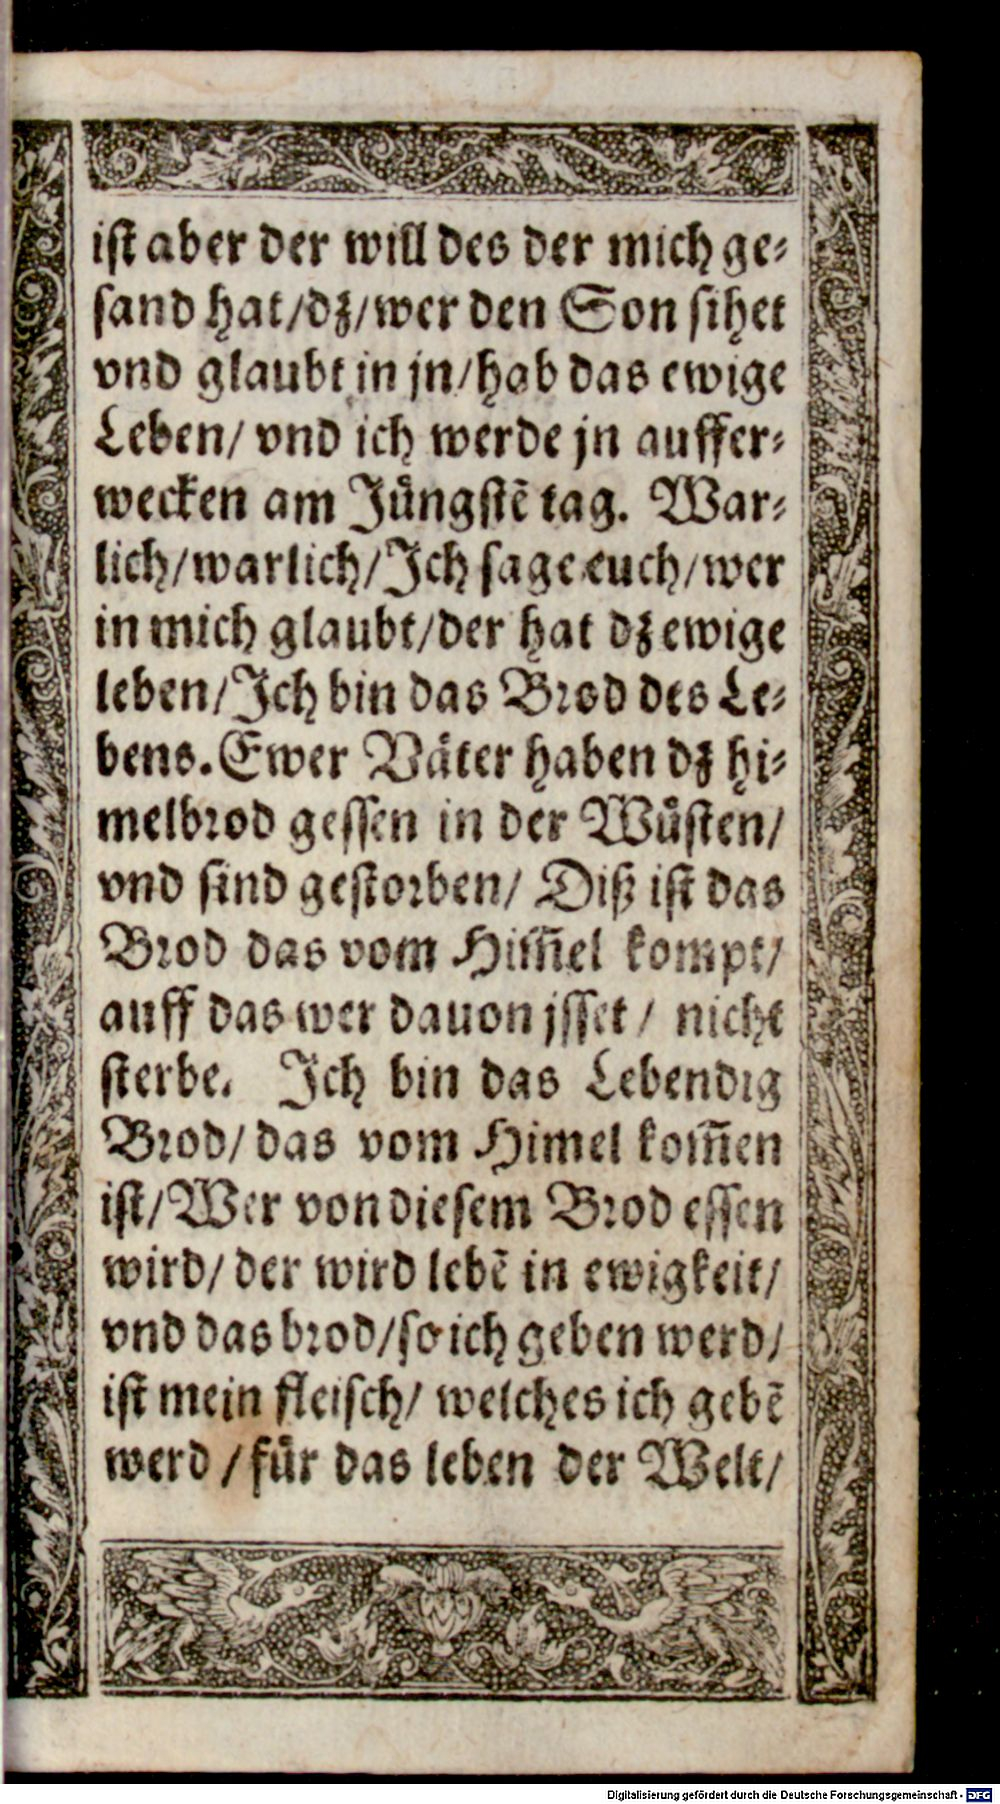 ist aber der will des der mich ge⸗
sand hat/dz/wer den Son sihet
vnd glaubt in jn/hab das ewige
Leben/ vnd ich werde jn auffer⸗
wecken am Jüngstē tag. War⸗
lich/warlich/Ich sage euch/wer
in mich glaubt/der hat dz ewige
leben/Ich bin das Brod des Le⸗
bens. Ewer Väter haben dz hi⸗
melbrod gessen in der Wüsten/
vnd sind gestorben/ Diß ist das
Brod das vom Him̄el kompt/
auff das wer dauon jsset / nicht
sterbe. Ich bin das Lebendig
Brod/ das vom Himel kom̄en
ist/Wer von diesem Brod essen
wird/ der wird lebē in ewigkeit/
vnd das brod/so ich geben werd/
ist mein fleisch/ welches ich gebē
werd / für das leben der Welt/
Digitalisierung gefördert durch die Deutsche Forschungsgemeinschaft - DFG